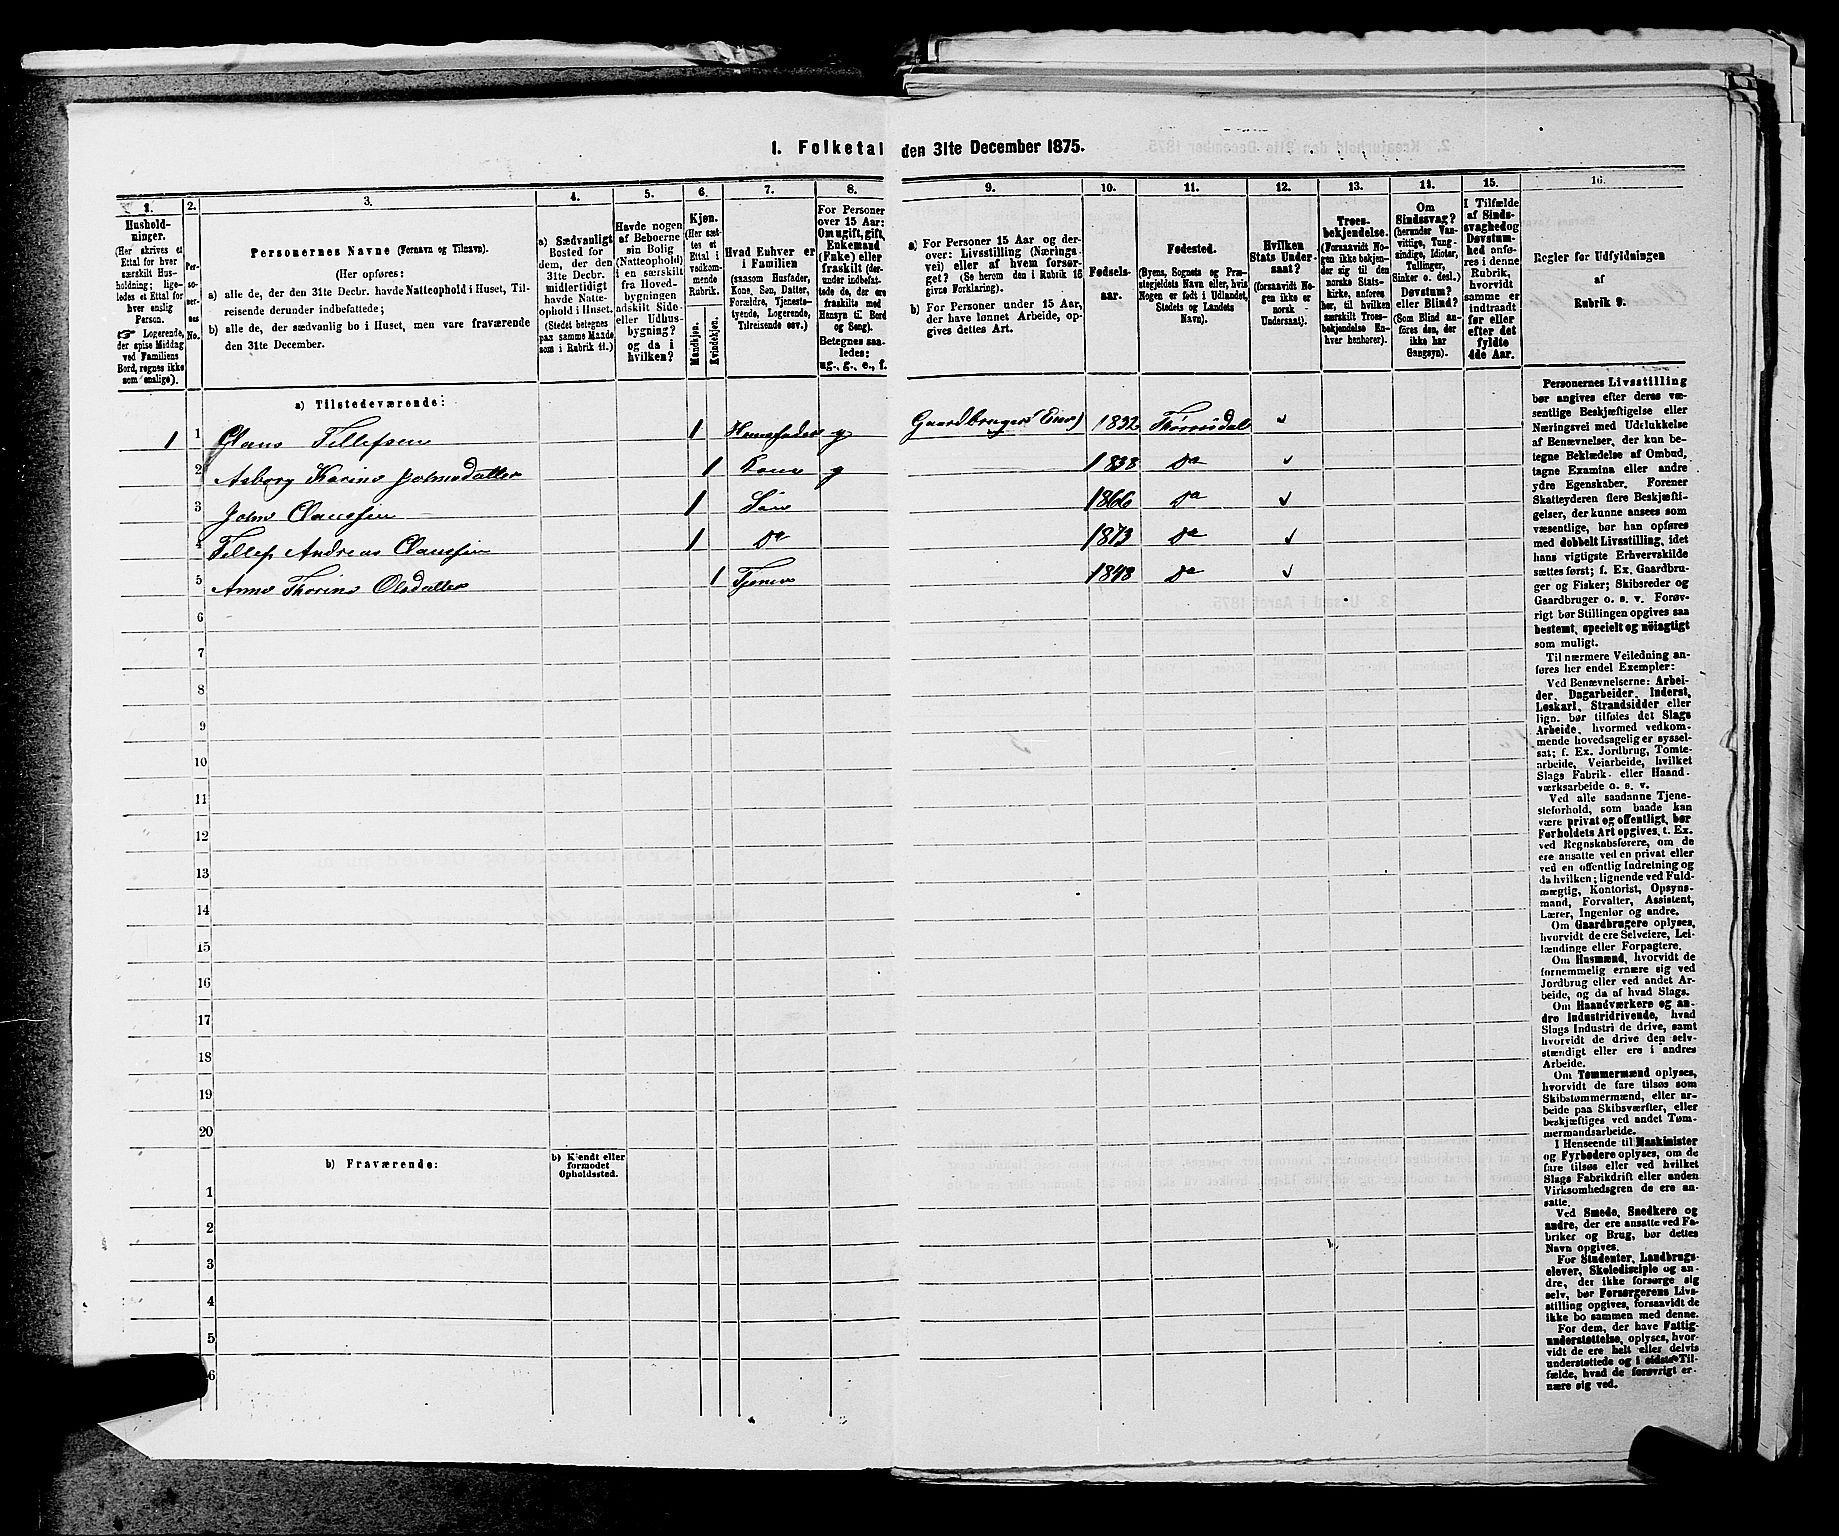 1. Folketal den 31te December 1875.
1. 2. 3. 4. 5. 6. 7. 8. 9. 10. 11. 12. 13. 14. 15. 16.
Hushold-
ninger.
(Her skrives et
Ettal for hver
særskilt Hus-
holdning; lige-
ledes et Ettal for
hver enslig
Person.
☞ Logerende,
der spise Middag
ved Familiens
Bord, regnes ikke
som enslige).
Per-
so-
ner-
nes
No.
Personernes Navne (Fornavn og Tilnavn).
(Her opføres:
a) alle de, der den 31te Decbr. havde Natteophold i Huset, Til-
reisende derunder indbefattede;
b) alle de, der sædvanlig bo i Huset, men vare fraværende
den 31te December.
a) Sædvanligt
Bosted for
dem, der den
31te Decbr.
midlertidigt
havde Natte-
ophold i Huset.
(Stedet betegnes
paa samme Maade
som i Rubrik 11.)
Havde nogen
af Beboerne
sin Bolig
(Natteophold)
i en særskilt
fra Hoved-
bygningen
adskilt Side-
eller Udhus-
bygning?
og da i
hvilken?
Kjøn.
(Her sæt-
tes et
Ettal i
vedkom-
mende
Rubrik.
Mandkjøn.
Kvindekjøn.
Hvad Enhver er
i Familien
(saasom Husfader,
Kone, Søn, Datter,
Forældre, Tjeneste-
tyende, Logerende,
Tilreisende osv.)
For Personer
over 15 Aar:
Om ugift, gift,
Enkemand
(Enke) eller
fraskilt (der-
under indbefat-
tede de, der ere
fraskilte med
Hensyn til Bord
og Seng).
Betegnes saa-
ledes:
ug., g., e., f.
a) For Personer 15 Aar og der-
over: Livsstilling (Nærings-
vei) eller af hvem forsør-
get? (Se herom den i Rubrik 16
givne Forklaring).
b) For Personer under 15 Aar,
der have lønnet Arbeide, op-
gives dettes Art.
Fødsels-
aar.
Fødested.
(Byens, Sognets og Præ-
stegjeldets Navn eller, hvis
Nogen er født i Udlandet,
Stedets og Landets
Navn).
Hvilken
Stats Under-
saat?
(forsaavidt No-
gen ikke er
norsk
Undersaat).
Troes-
bekjendelse.
(Forsaavidt No-
gen ikke bekjen-
der sig til den
norske Stats-
kirke, anføres
her, til hvilken
særskilt Troes-
bekjendelse En-
hver henhører).
Om
Sindssvag?
(herunder Van-
vittige, Tung-
sindige, Idioter,
Tullinger,
Sinker o. desl.)
Døvstum?
eller Blind?
(Som Blind an-
føres den, der
ikke har
Gangsyn).
I Tilfælde
af Sinds-
svaghed og
Døvstum-
hed anfø-
res i denne
Rubrik,
hvorvidt
samme er
indtraadt
før eller
efter det
fyldte
4de Aar.
Regler for Udfyldningen
af
Rubrik 9.
a) Tilstedeværende:
1 1 Claus Tellefsen 1 Huusfader g Gaardbruger (Eier) 1832 Thorrisdal ✓
2 Asborg Karine Johnsdatter 1 Kone g 1838 Do ✓
3 John Claussen 1 Søn 1866 Do ✓
4 Tellef Andreas Claussen 1 Do 1873 Do ✓
5 Anne Thorine Olsdatter 1 Tjener 1848 Do ✓
6
7
8
9
10
11
12
13
14
15
16
17
18
19
20
b) Fraværende:
b) Kjendt eller
formodet
Opholdssted.
1
2
3
4
5
6
Personernes Livsstilling
bør angives efter deres væ-
sentlige Beskjæftigelse eller
Næringsvei med Udelukkelse
af Benævnelser, der kun be-
tegne Beklædelse af Ombud,
tagne Examina eller andre
ydre Egenskaber. Forener
Skatteyderen flere Beskjæfti-
gelser, der kunne ansees som
væsentlige, bør han opføres
med dobbelt Livsstilling, idet
hans vigtigste Erhvervskilde
sættes først; f. Ex. Gaardbru-
ger og Fisker; Skibsreder og
Gaardbruger o. s. v. Forøv-
rigt bør Stillingen opgives saa
bestemt, specielt og nøiagtigt
som muligt.
Til nærmere Veiledning an-
føres her endel Exempler:
Ved Benævnelserne: Arbei-
der, Dagarbeider, Inderst,
Løskarl, Strandsidder eller
lign. bør tilføies det Slags
Arbeide, hvormed vedkom-
mende hovedsagelig er syssel-
sat; f. Ex. Jordbrug, Tomte-
arbeide, Veiarbeide, hvilket
Slags Fabrik- eller Haand-
værksarbeide o. s. v.
Ved alle saadanne Tjene-
steforhold, som baade kan
være privat og offentligt, bør
Forholdets Art opgives, t. Ex.
ved Regnskabsførere, om de
ere ansatte ved en privat eller
ved en offentlig Indretning og
da hvilken; lignende ved Fuld-
mægtig, Kontorist, Opsyns-
mand, Forvalter, Assistent,
Lærer, Ingeniør og andre.
Om Gaardbrugere oplyses,
hvorvidt de ere Selveiere, Lei-
lændinge eller Forpagtere.
Om Husmænd, hvorvidt de
fornemmelig ernære sig ved
Jordbrug eller ved andet Ar-
beide, og da af hvad Slags.
Om Haandværkere og an-
dre Industridrivende, hvad
Slags Industri de drive, samt
hvorvidt de drive den selv-
stændigt eller ere i andres
Arbeide.
Om Tømmermænd oplyses,
hvorvidt de fare tilsøs som
Skibstømmermænd, eller ar-
beide paa Skibsværfter, eller
beskjæftiges ved andet Tøm-
mermandsarbeide.
I Henseende til Maskinister
og Fyrbødere oplyses, om de
fare tilsøs eller ved hvilket
Slags Fabrikdrift eller anden
Virksomhedsgren de ere an-
satte.
Ved Smede, Snedkere og
andre, der ere ansatte ved Fa-
briker og Brug, bør dettes
Navn opgives.
For Studenter, Landbrugs-
elever, Skoledisciple og an-
dre, der ikke forsørge sig
selv, bør Forsørgerens Livs-
stilling opgives, forsaavidt de
ikke bo sammen med denne.
For dem, der have Fattig-
understøttelse, oplyses, hvor-
vidt de ere helt eller delvis
understøttede og i sidste Til-
fælde, hvad de forøvrigt er-
nære sig ved.